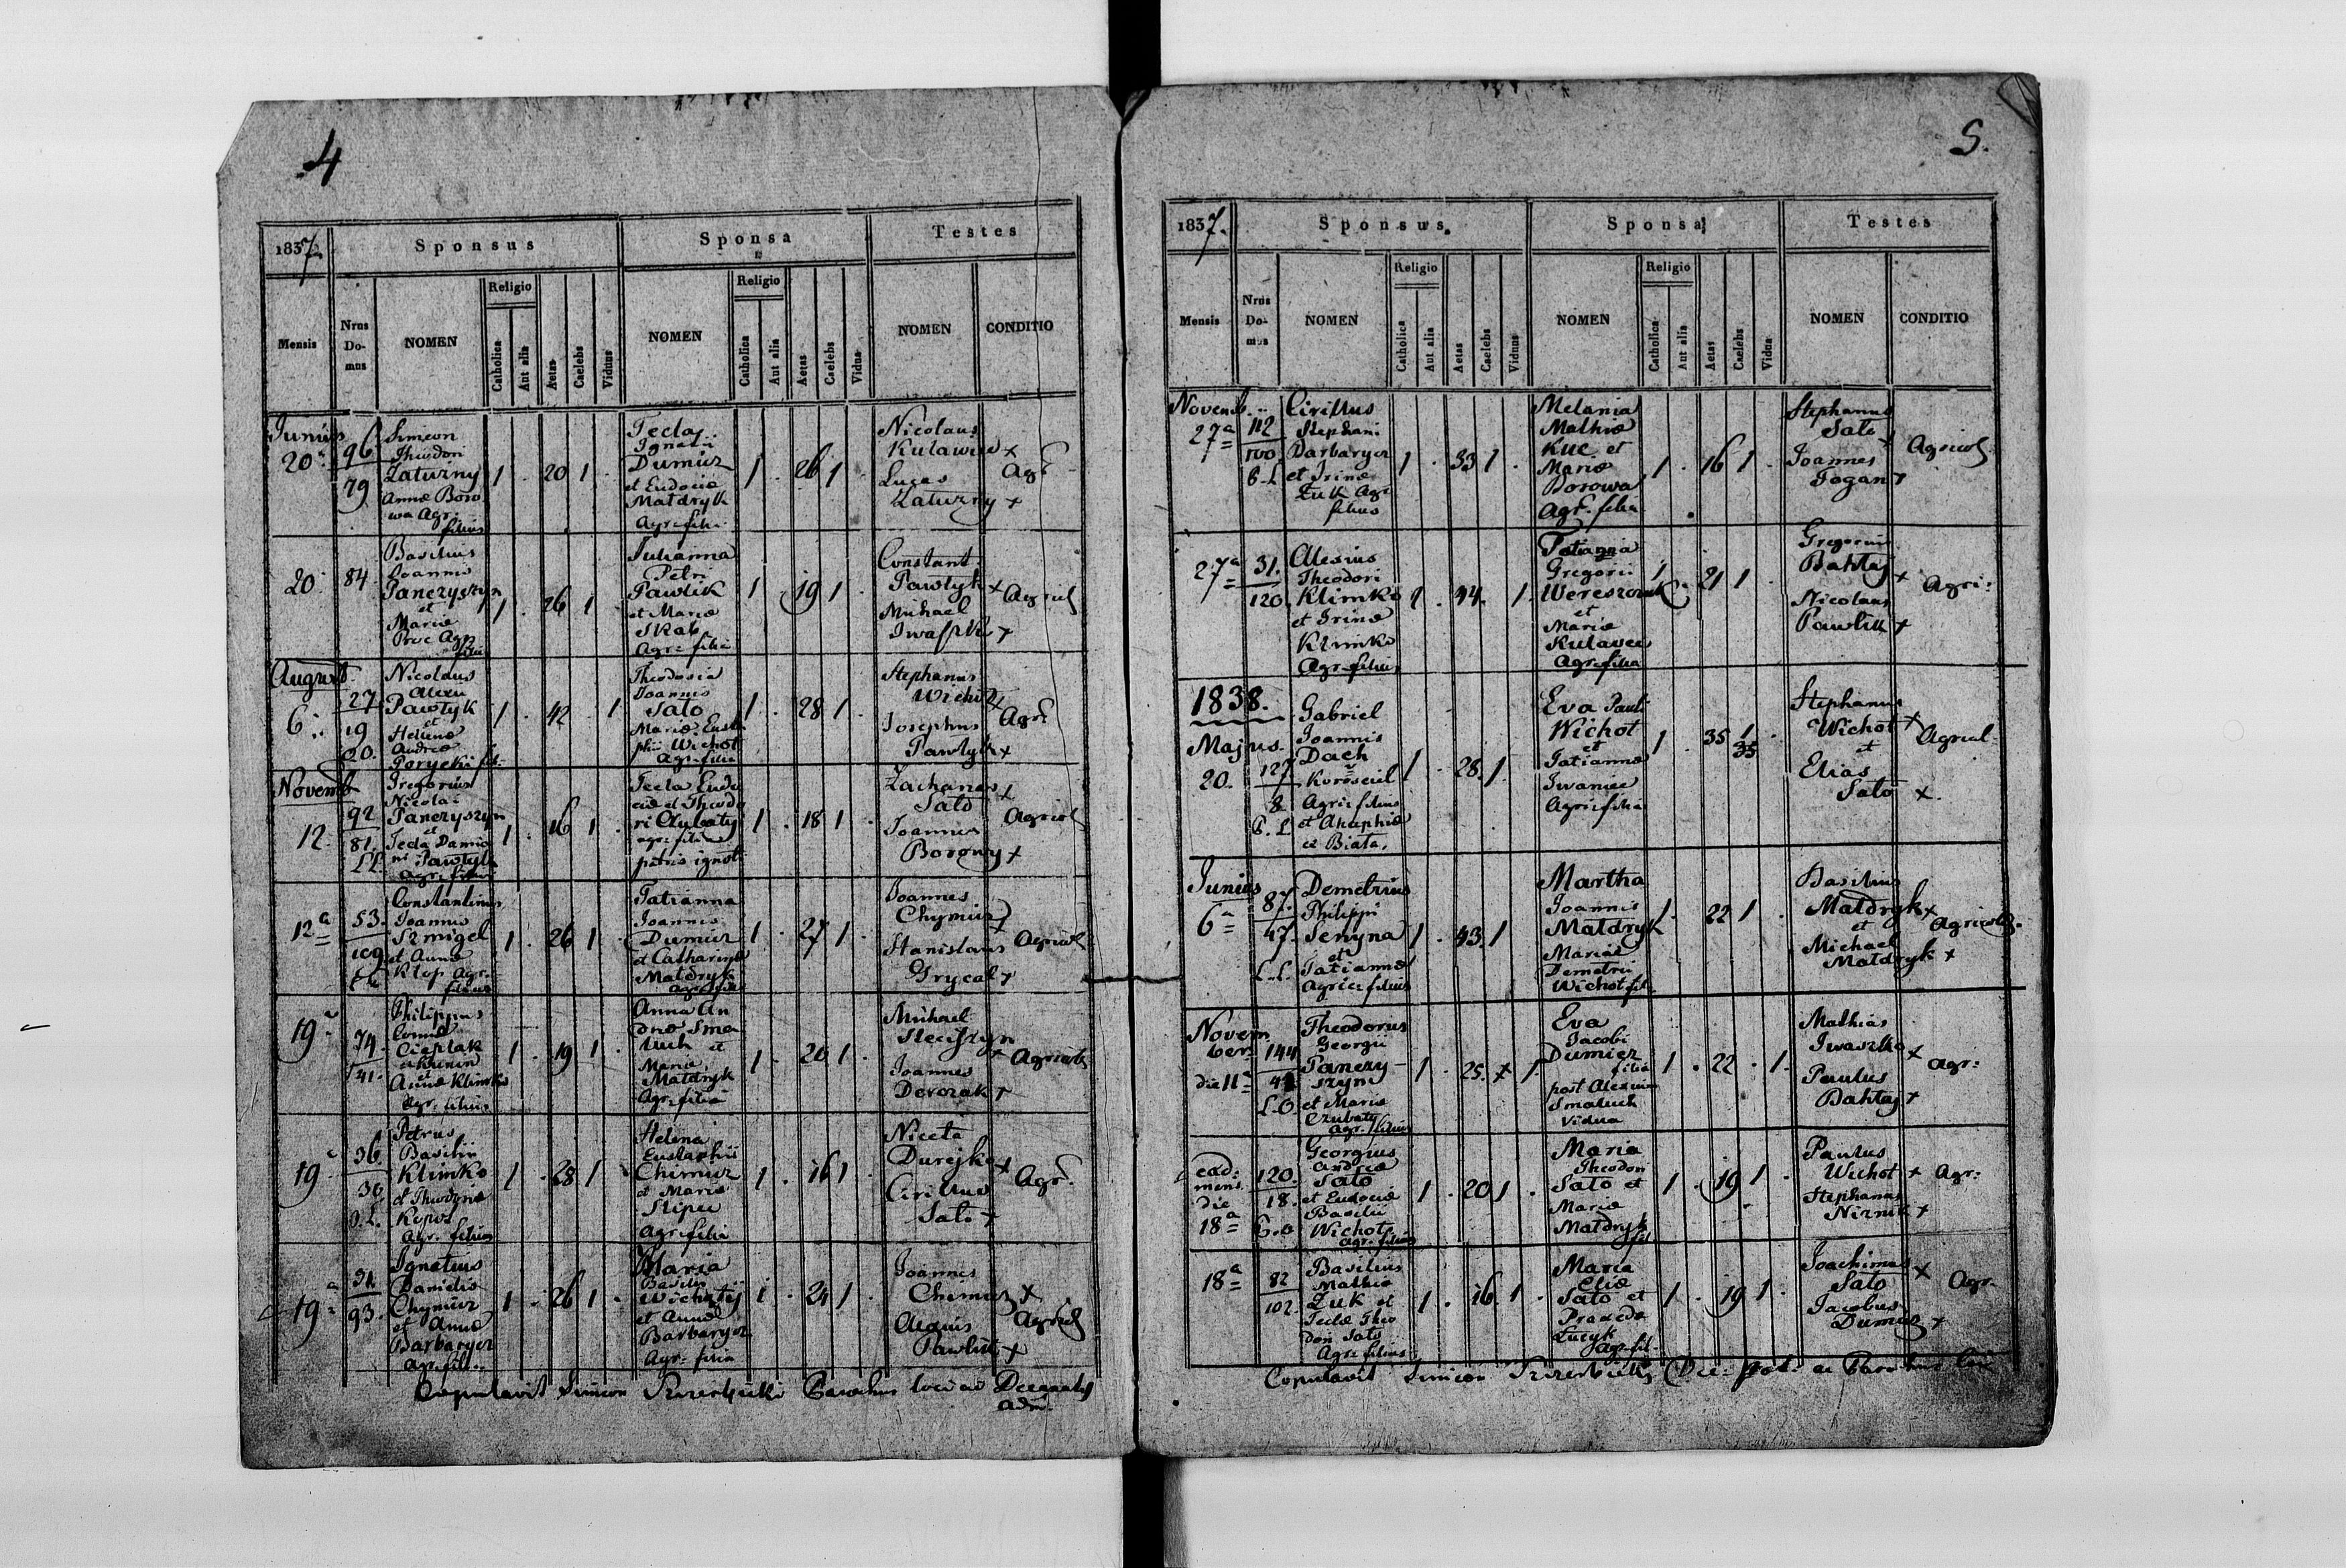 4
1837.
Sponsus
Sponsa
Testes
Mensis
Nrus Do- mus
NOMEN
Religio
Catholica
Aut alia
Aetas
Caelebs
Viduus
NOMEN
Religio
Catholica
Aut alia
Aetas
Caelebs
Vidua
NOMEN
CONDITIO
Junius
20
96
79
Simeon
Theodori
Zaturny
Annæ Boro
wa Agr.
filius
1 . 20 1 .
Tecla
Ignatii
Dumicz
et Eudociæ
Matdryk
Agr. filia
1 . 26 1
Nicolaus
Kulawiec +
Lucas
Zaturny +
Agr.
20
84
Basilius
Joannis
Panczyszyn
et
Mariæ
Proc Agr.
filius
1 . 26 1
Julianna
Petri
Pawlik
et Mariæ
Skab
Agr. filia
1 . 19 1
Constant.
Pawtyk +
Michael
+
Agricol
August.
6
27
19
20.
Nicolaus
Alexii
Pawtyk
et
Helenæ
Andreæ
fil.
1 . 42 . 1
Theodosia
Joannis
Sato
Mariæ Eusta
phii Wichot
Agr. filia
1 . 28 1
Stephanus
Wichot +
Josephus
Pawtyk +
Agr.
Novemb
12
92
81.
LL.
Gregorius
Nicolai
Panczyszyn
et
Tecla Damia
ni Pawtyk
Agr. filius
1 . 16 1
Tecla Eudo
ciæ et Theodo
ri Czubatyj
agr. filia
patris ignoti
1 . 18 1
Zacharias +
Sato
Joannes
Borowy +
Agricol
12ª
53.
109
Constantinus
Joannis
Szmigel
et Annæ
Klop Agr.
filius
1 . 26 1 .
Tatianna
Joannis
Dumicz
et Catharinæ
Matdryk
Agr. filia
1 . 27 1
Joannes
Chymicz
Stanislaus
Grycal +
Agricol
19
74
41.
Philippus
Cosmæ
Cieplak
et
Annæ Klimko
Agr. filius
1 . 19 1
Anna An
dreæ Sma
luch et
Mariæ
Matdryk
Agr. filia
1 . 20 1
Michael
+
Joannes
Derczak +
Agricol
19
36
30
O.L.
Petrus
Basilii
Klimko
et
Agr. filius
1 . 28 1
Helena
Eustachii
Chimicz
et Mariæ
Agr. filia
1 . 16 1
Niceta
Durejko +
Cirillus
Sato +
Agr.
19
93.
Ignatius
Danielis
Chymicz
et Annæ
Barbarycz
agr. fil.
1 . 26 1
Maria
Basilii
Wichotij
et Annæ
Barbarycz
Agr. filia
1 . 24 1
Joannes
Chomicz +
Alexius
Pawlik +
Agricol
Copulavit Simeon Parochus loci ac Decanatus
adm.
5.
1837.
Sponsus
Sponsa
Testes
Mensis
Nrus Do- mus
NOMEN
Religio
Catholica
Aut alia
Aetas
Caelebs
Viduus
NOMEN
Religio
Catholica
Aut alia
Aetas
Caelebs
Vidua
NOMEN
CONDITIO
Novemb.
27ª
112
100
Cirillus
Stephani
Barbarycz
et Irinæ
Zuk Agr.
filius
1 . 33 1 .
Melania
Mathiæ
Kuc et
Mariæ
Borowa
Agr. filia
1 . 16 1 .
Stephanus
Sato
Joannes
Pogan +
Agricol
27ª
31.
120
Alexius
Theodori
Klimko
et Irinæ
Klimko
Agr. filius
1 . 44. 1.
Tatianna
Gregorii
et
Mariæ
Kulawec
Agr. filia
1 . 21 1 .
Gregorius
Bahtaj +
Nicolaus
Pawlik +
Agri:
1838.
Majus
20.
127
8
Gabriel
Joannis
Dach
Agri: filius
et
1 . 28. 1.
Eva Pauli
Wichot
et
Tatiannæ
Iwaniec
Agr: filia
1 . 35 1
35
Stephanus
Wichot +
et
Elias
Sato +
Agricol
Junius
6ª
87.
47.
L.L.
Demetrius
Philippi
Senyna
et
Tatiannæ
Agri: filius
1 . 43. 1
Martha
Joannis
Matdryk
Mariæ
Demetrii
Wichot fil.
1 . 22 1 .
Basilius
Matdryk +
et
Michael
Matdryk +
Agricolæ.
Novem
ber.
die 11ª
144
L.O.
Theodorus
Georgii
Panczy-
szyn
et Mariæ
Czubaty
agr. filius
1 . 25. 1.
Eva
Jacobi
Dumicz
filia
post Alexium
Smaluch
vidua
1 . 22 . 1.
Mathias
Iwaszko +
Paulus
Bahtaj +
Agr:
eod:
mens.
die
18ª
120.
18.
Georgius
Andreæ
Sato
et Eudociæ
Basilii
Wichot
agr. filius
1 . 20 1 .
Maria
Theodori
Sato et
Mariæ
Matdryk
fil.
1 . 19 1 .
Paulus
Wichot +
Stephanus
Niznik +
Agr:
18ª
82
102
Basilius
Mathiæ
Zuk et
Teclæ Theo
dori Sato
Agri: filius
1 . 16. 1 .
Maria
Eliæ
Sato et
Praxedæ
Lucyk
Agr. fil.
1 . 19 1 .
Joachimus
Sato +
Jacobus
Dumicz +
Agr.
Copulavit Simeon Parochus loci